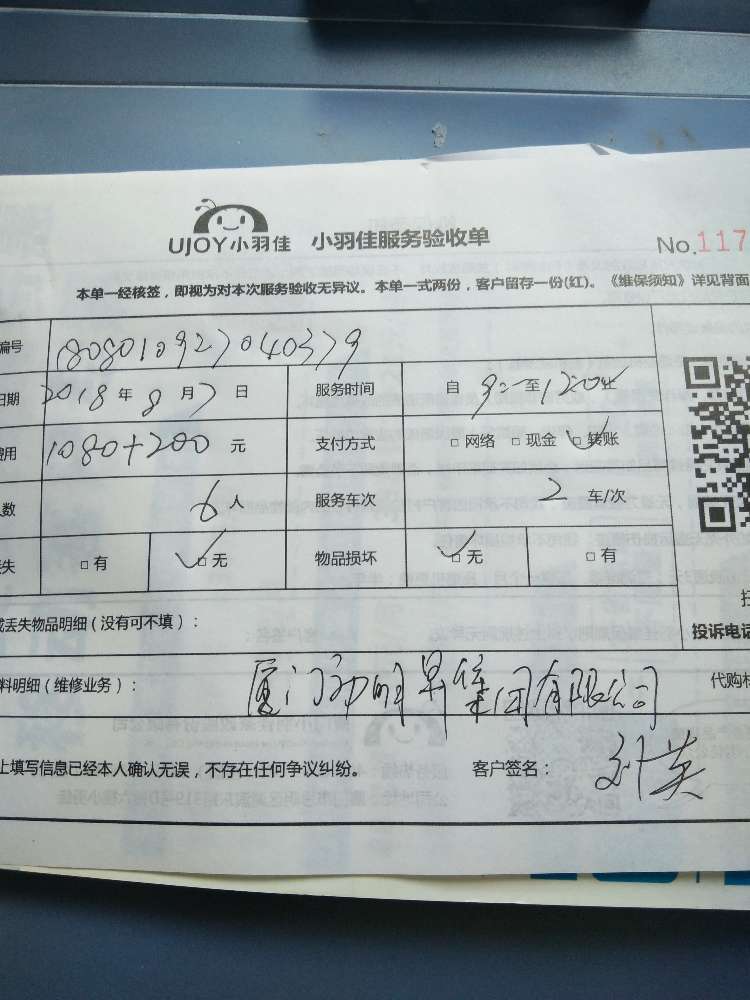 UJOY小羽佳 小羽佳服务验收单 No.117
本单一经核签，即视为对本次服务验收无异议。本单一式两份，客户留存一份(红)。《维保须知》详见背面
编号 1808010927040379
日期 2018年8月7日 服务时间 自9:-至12:00止
费用 1080+200元 支付方式 □网络 □现金 □转账
人数 6人 服务车次 2车/次
丢失 □有 □无 物品损坏 □无 □有
或丢失物品明细（没有可不填）： 投诉电话
料明细（维修业务）： 厦门 集团有限公司 代购材
上填写信息已经本人确认无误，不存在任何争议纠纷。 客户签名： 刘英